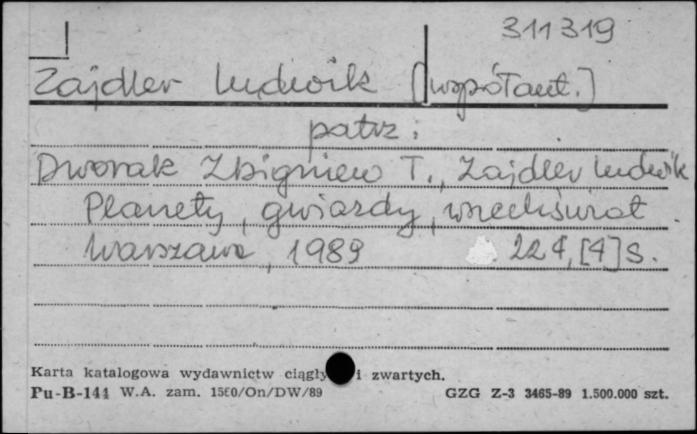 311319
Zajdler Ludwik [współaut.]
patrz:
Dworak Zbigniew T., Zajdler Ludwik
Planety, gwiazdy, wszechświat.
Warszawa, 1989 224, [4] s.
Karta katalogowa wydawnictw ciągły i zwartych.
Pu-B-144 W.A. zam. 1560/On/DW/89 GZG Z-3 3465-89 1.500.000 szt.